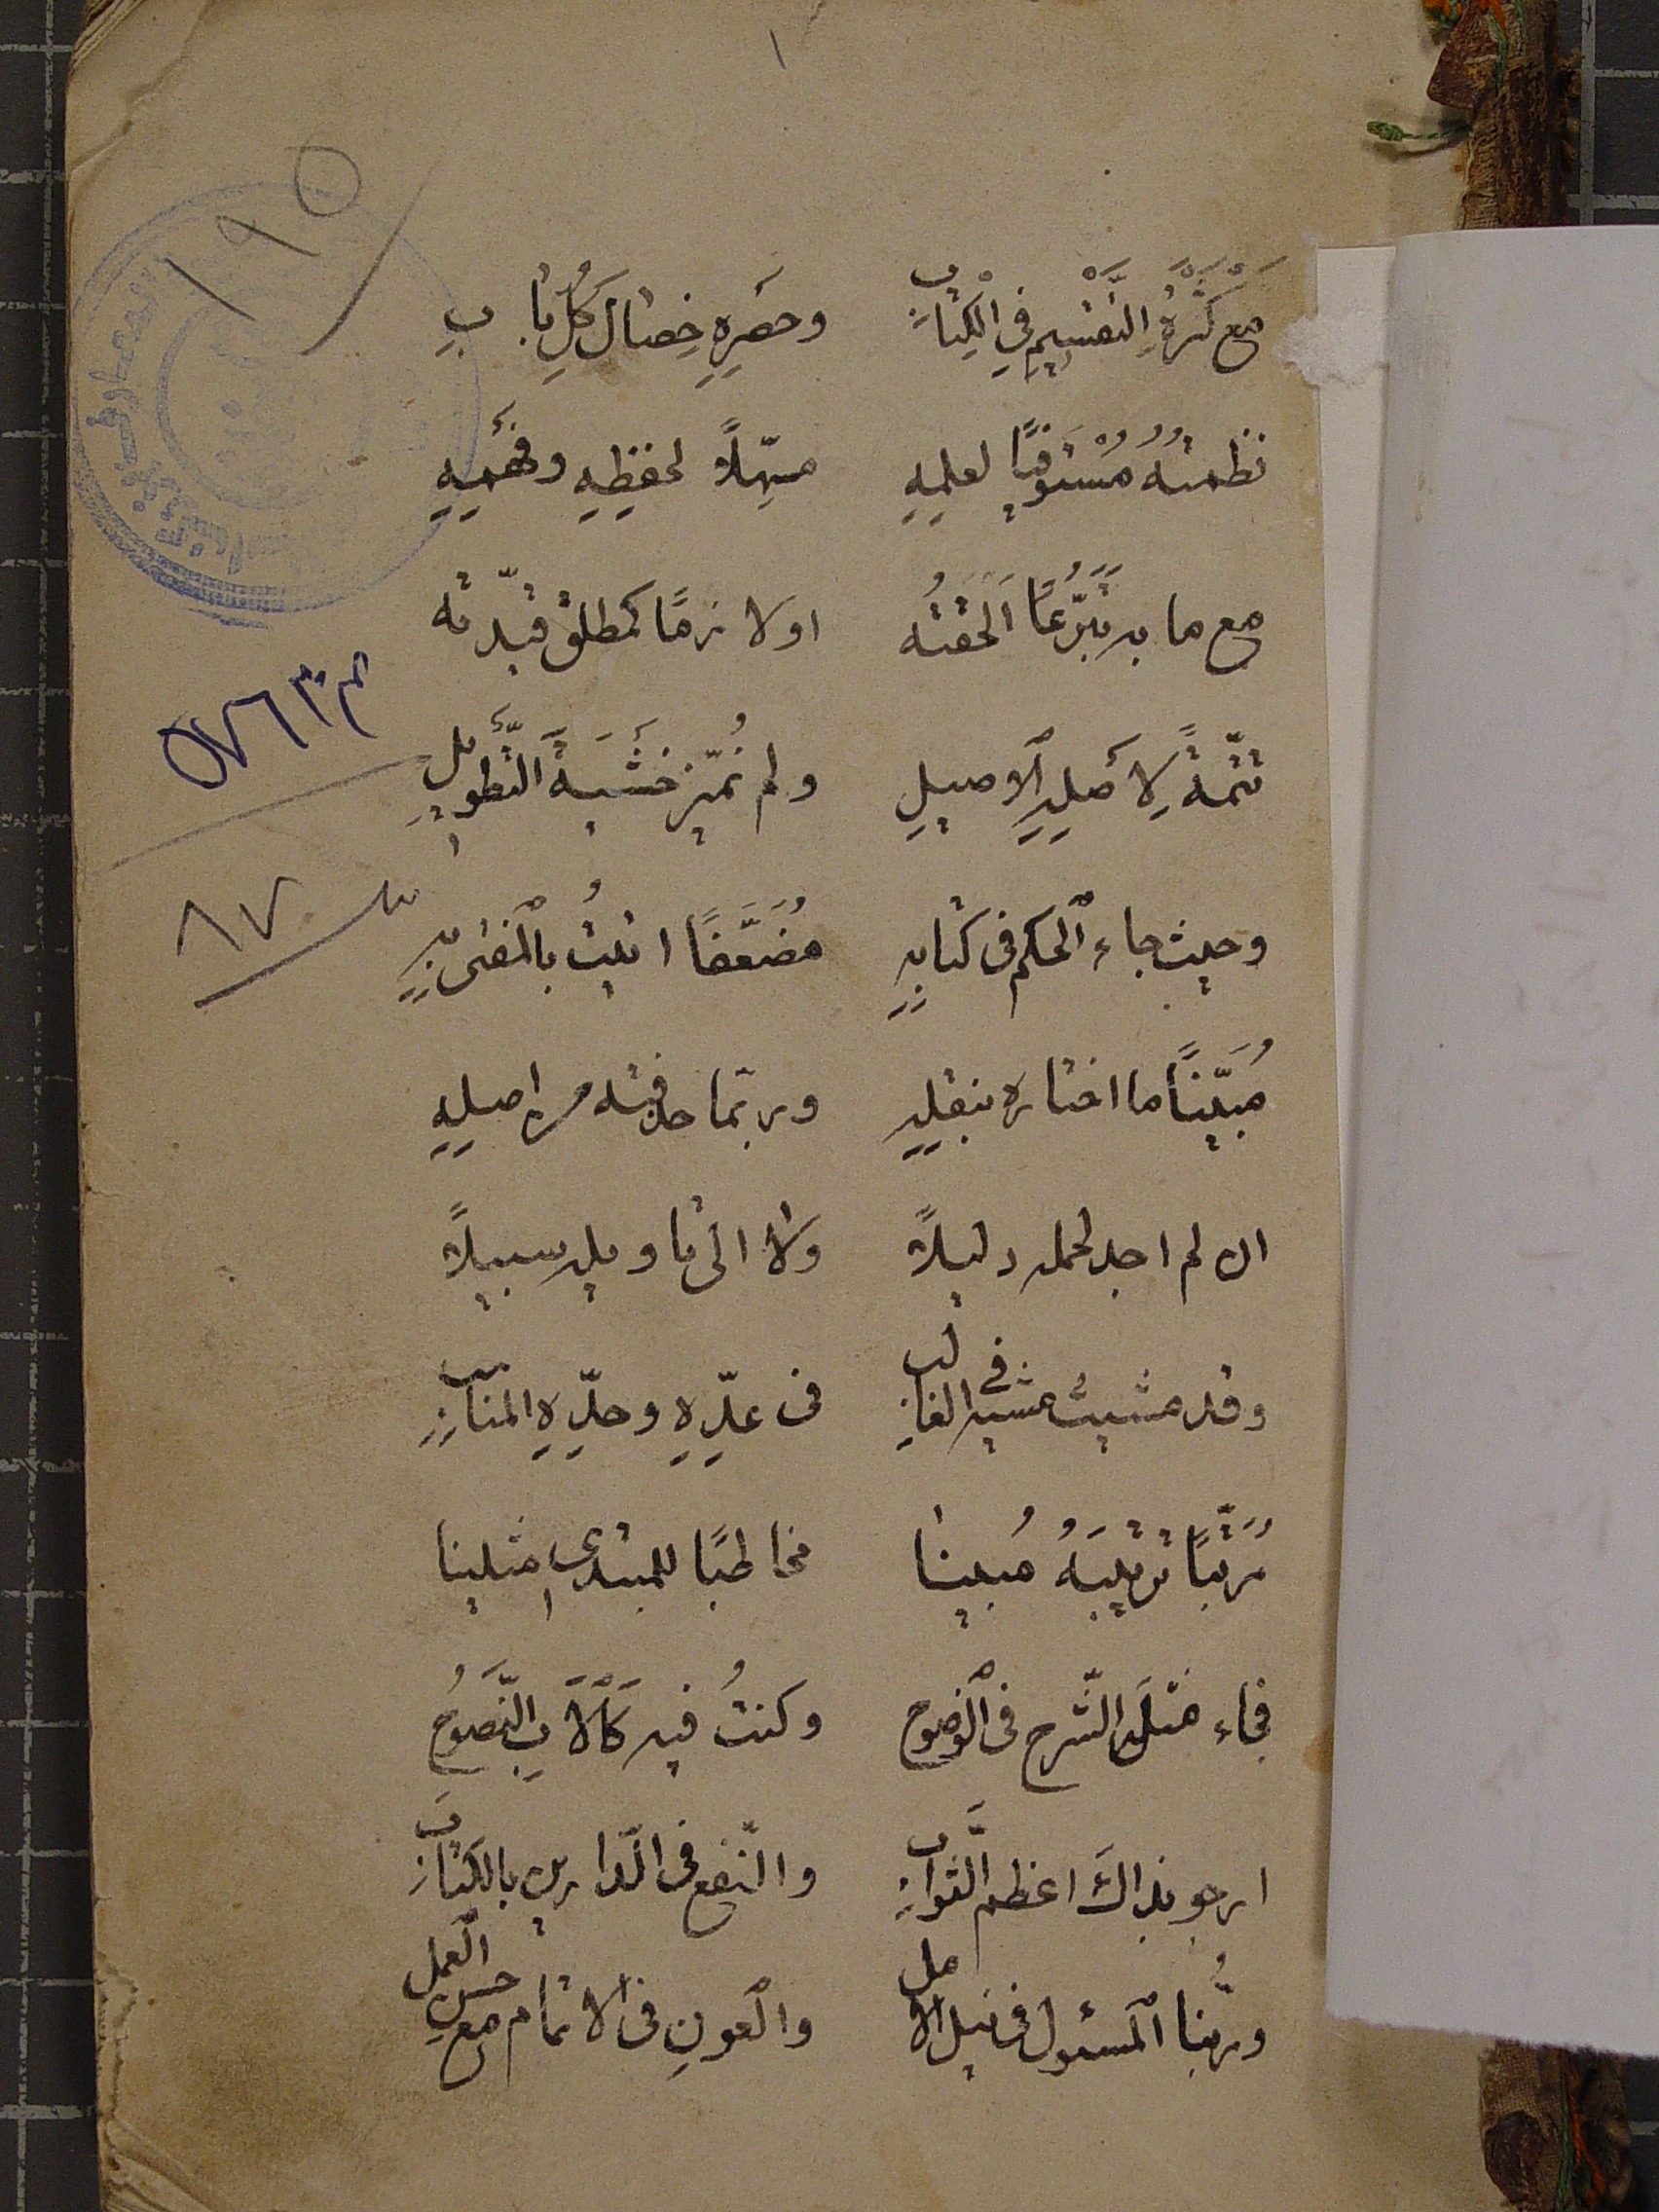 ١
١٩٥
مَعْ كَثْرَةِ التَّقْسِيمِ فِي الْكِتَابِ وحصرِهِ خِصَالَ كُلِّ بَابِ
نظمتُهُ مُسْتَوْفِيًا لعلمِهِ مسهّلًا لحفظِهِ وفهمِهِ
مع ما به تَبَرُّعًا اَلحَقتُه اولازمًا كمطلق قيّدته
تتمّةً لِاَصلِهِ الاصيلِ ولم نُمَيّز خَشْيَةَ التَّطويلِ
٥٧٦٣٢
وحيث جاء الحكم فى كتابِهِ مُضَعَّفًا اتيتُ بالمفتى بِهِ
٨٧
مُبَيِّنًا ما اختاره بنقلِهِ وربّما حذفته من اصلِهِ
ان لم اجد لحمله دليلًا ولا الى تاويله سبيلًا
وقد مشيتُ مشيه في الغالبِ فى عدّهِ وحدّهِ المناسبِ
مُرَتِّبًا ترتيبَهُ مُبينا مخاطبًا للمبتدي مثلينا
فجاء مثلَ الشّرح فى الوضوح وكنتُ فيه كَالْاَبِ النَّصُوحِ
ارجو بذاك اَعظم الثَّوابِ والنّفع فى الدّارين بالكتابِ
وربُّنا المسئول فى نيل الامل والعونِ فى الاتمام مع حسن العمل